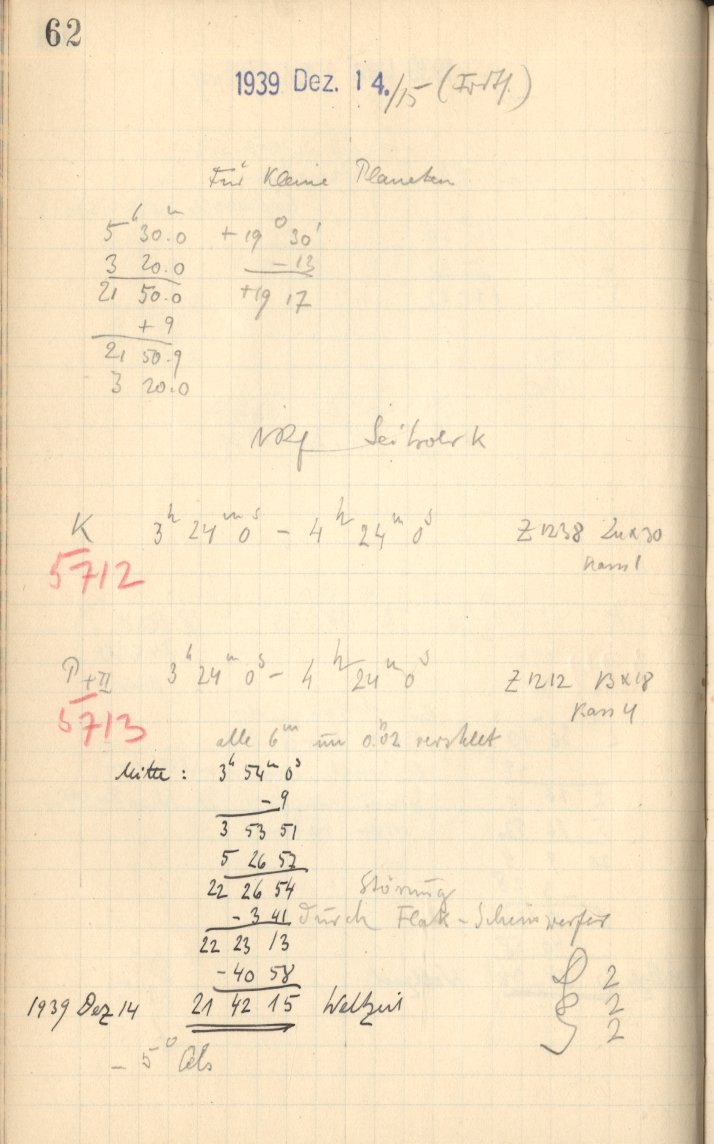 62
1939 Dez. 14./15
Für Kleine Planeten
5ʰ 30.0ᵐ + 19° 30'
3 20.0 - 13
21 50.0 +19 17
+ 9
21 50.9
3 20.0
K 3ʰ 24ᵐ 0ˢ - 4ʰ 24ᵐ 0ˢ Z 1238 24x30
Kass 1
5712
P+II 3ʰ 24ᵐ 0ˢ - 4ʰ 24ᵐ 0ˢ Z 1212 13x18
Kass 4
5713
alle 6ᵐ um 0.02 verstellt
Mitte: 3ʰ 54ᵐ 0ˢ
- 9
3 53 51
5 26 57
22 26 54
Störung
- 3 41 durch Flak-Scheinwerfer
22 23 13
- 40 58
2
1939 Dez 14 21 42 15 Weltzeit
2
2
- 5°